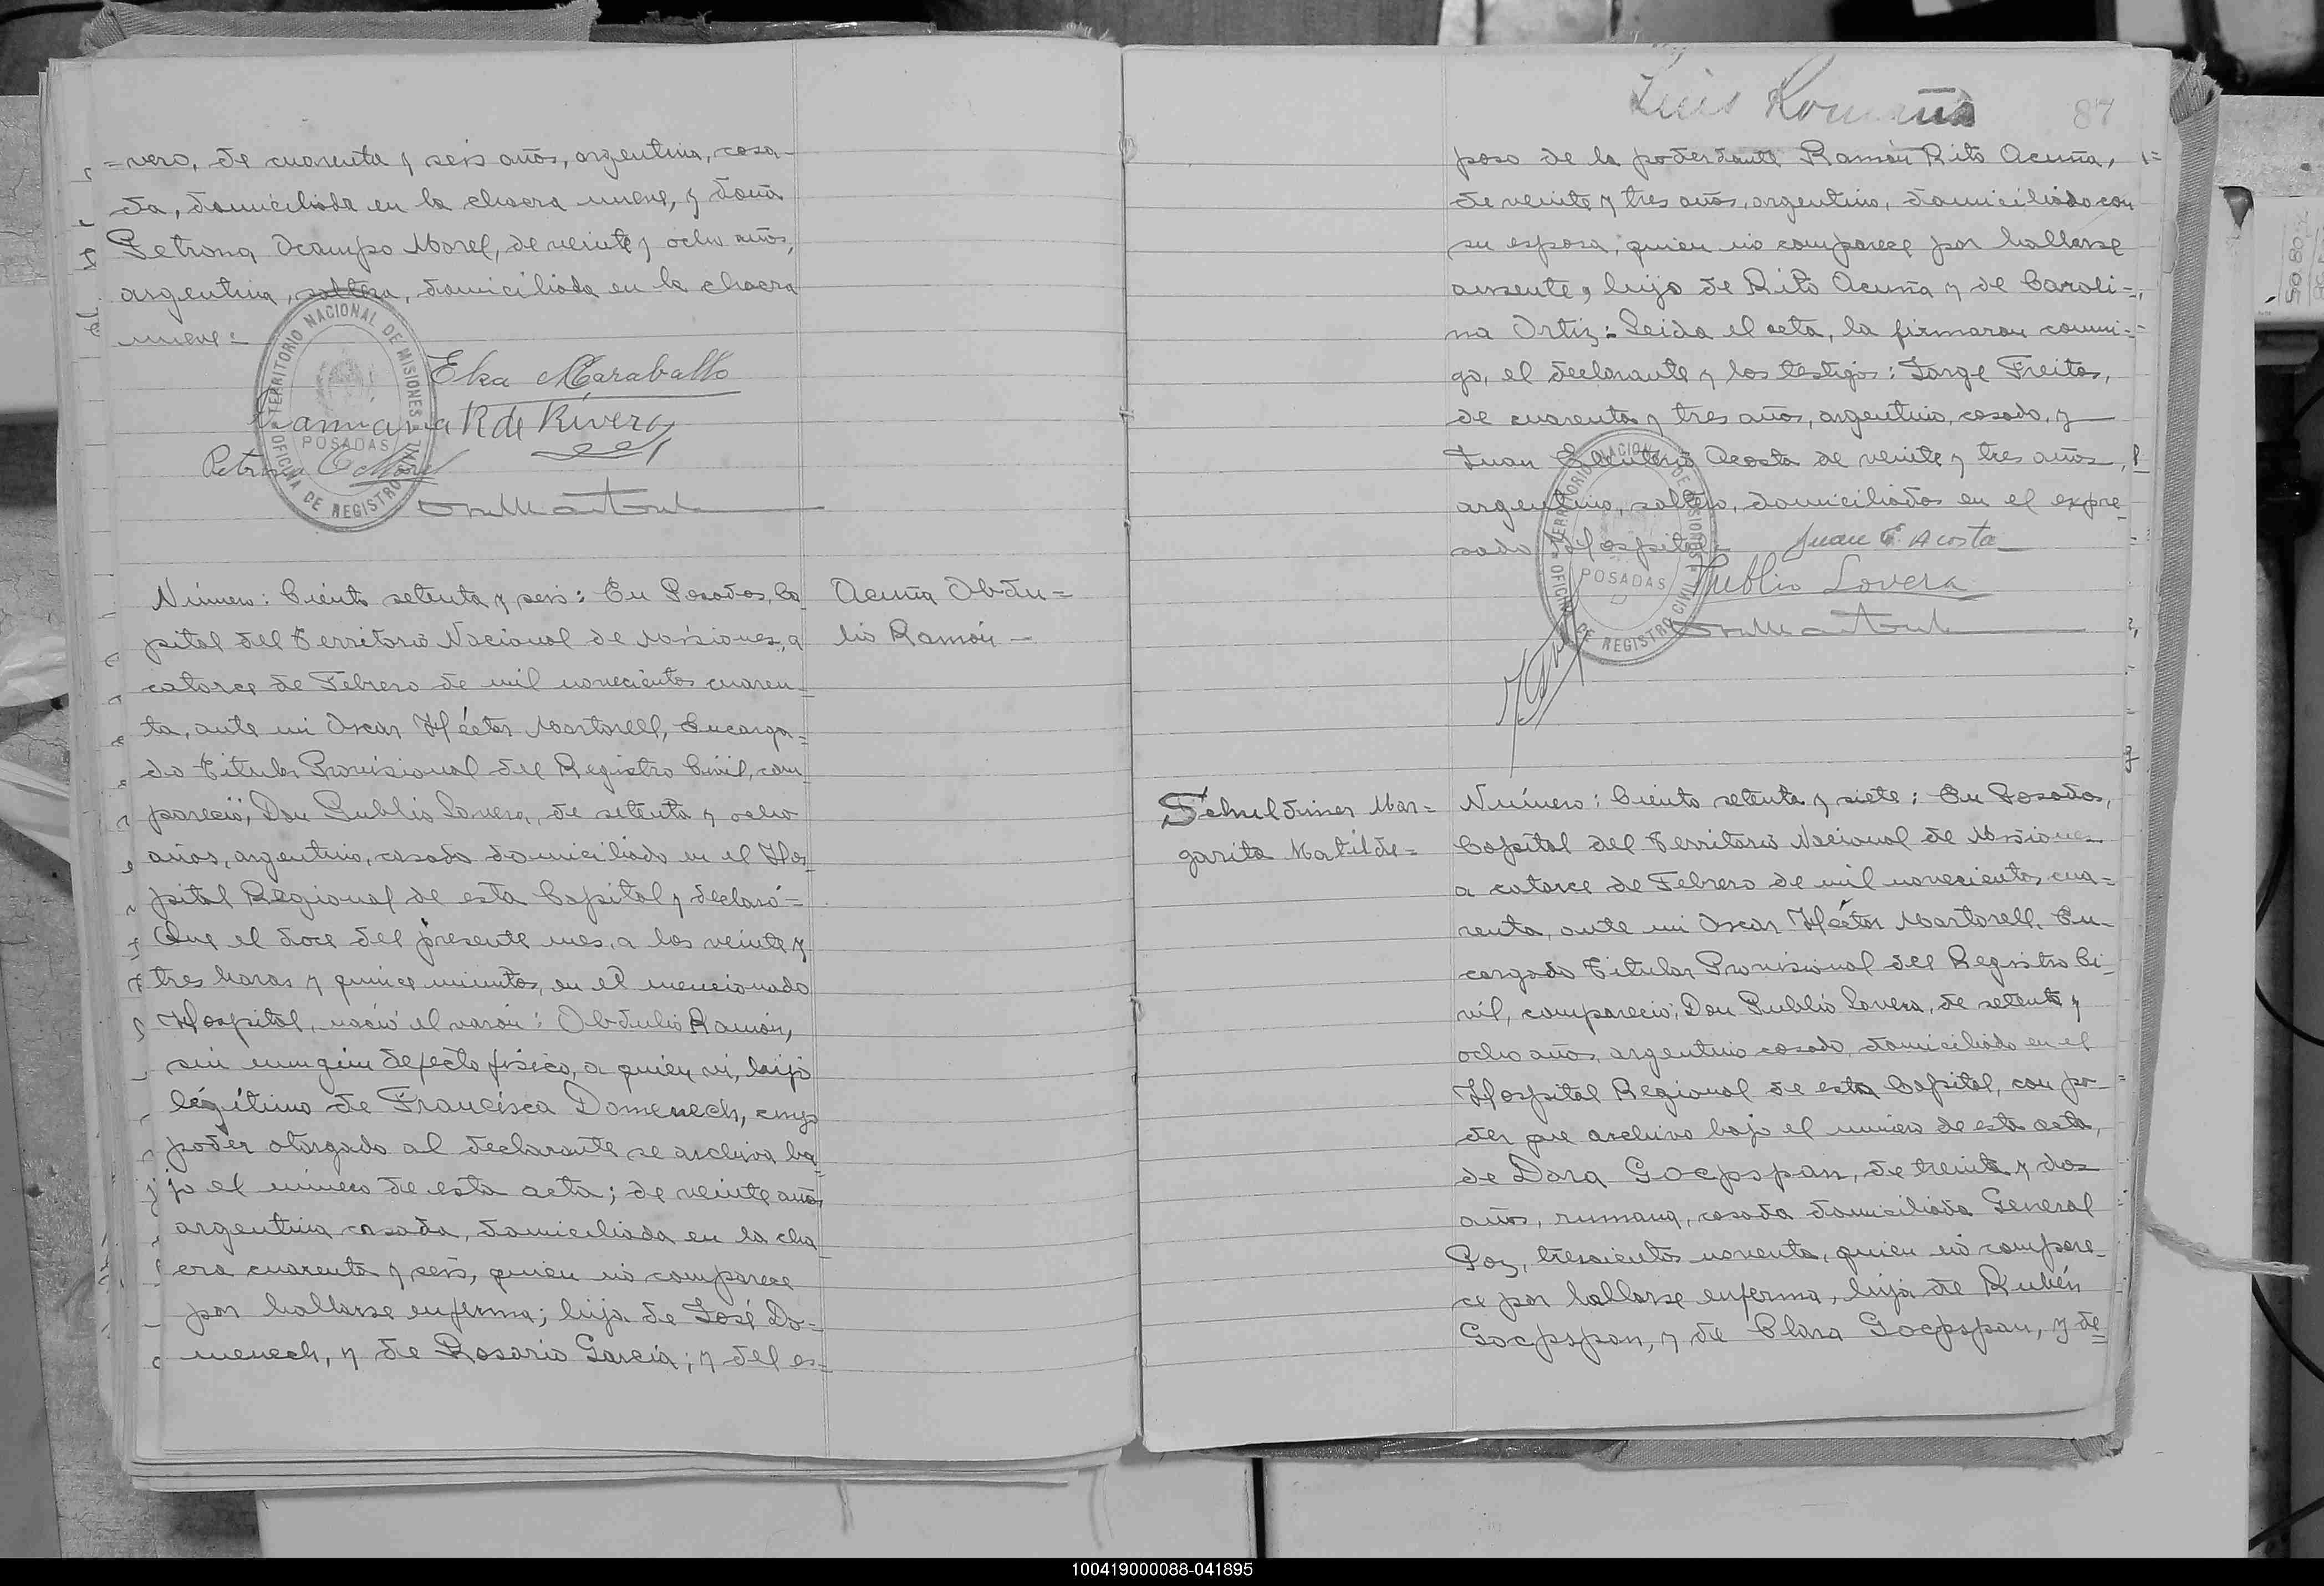 =vero, de cuarenta y seis años, argentina, casa-
da, domiciliada en la chacra nueve, y doña
Petrona Ocampo Morel, de veinte y ocho años,
argentina, soltera, domiciliada en la chacra
nueve=
TERRITORIO NACIONAL DE MISIONES
POSADAS
OFICINA DE REGISTRO CIVIL
Elsa Maraballo
R de Rivero
Petrona O Morel
Número: Ciento setenta y seis: En Posadas, Ca-
pital del Territorio Nacional de Misiones, a
catorce de Febrero de mil novecientos cuaren-
ta, ante mi Oscar Héctor Martorell, Encarga-
do Titular Provisional del Registro Civil, com-
pareció; Don Publio Lovera, de setenta y ocho
años, argentino, casado domiciliado en el Hos-
pital Regional de esta Capital y declaró=
Que el doce del presente mes, a las veinte y
tres horas y quince minutos, en el mencionado
Hospital, nació el varón: Obdulio Ramón,
sin ningún defecto físico, a quien vi, hijo
legítimo de Francisca Domenech, cuyo
poder otorgado al declarante se archiva ba-
jo el número de esta acta; de veinte años
argentina casada, domiciliada en la cha-
cra cuarenta y seis, quien nó comparece
por hallarse enferma; hija de José Do=
menech, y de Rosario García; y del es=
Acuña Obdu=
lio Ramón=
Luis Romaña
87
poso de la poderdante Ramón Rito Acuña,
de veinte y tres años, argentino, domiciliado con
su esposa, quien nó comparece por hallarse
ausente, hijo de Rito Acuña y de Caroli=
na Ortiz: Leida el acta, la firmaron conmi-
go, el declarante y los testigos: Jorge Freitas,
de cuarenta y tres años, argentino, casado, y
Juan Eleuterio Acosta de veinte y tres años,
argentino, soltero, domiciliados en el expre-
sado Hospital=
Juan E. Acosta
Publio Lovera
TERRITORIO NACIONAL DE MISIONES
POSADAS
OFICINA DE REGISTRO CIVIL
Schuldiner Mar=
garita Matilde=
Número: Ciento setenta y siete: En Posadas,
Capital del Territorio Nacional de Misiones
a catorce de Febrero de mil novecientos cua=
renta, ante mi Oscar Héctor Martorell, En-
cargado Titular Provisional del Registro Ci-
vil, compareció; Don Publio Lovera, de setenta y
ocho años, argentino casado, domiciliado en el
Hospital Regional de esta Capital, con po-
der que archivo bajo el número de esta acta,
de Dora Gocpspan, de treinta y dos
años, rumana, casada domiciliada General
Paz, trescientos noventa, quien nó compare-
ce por hallarse enferma, hija de Rubén
Gocpspan, y de Clara Gocpspan, y de=
100419000088-041895